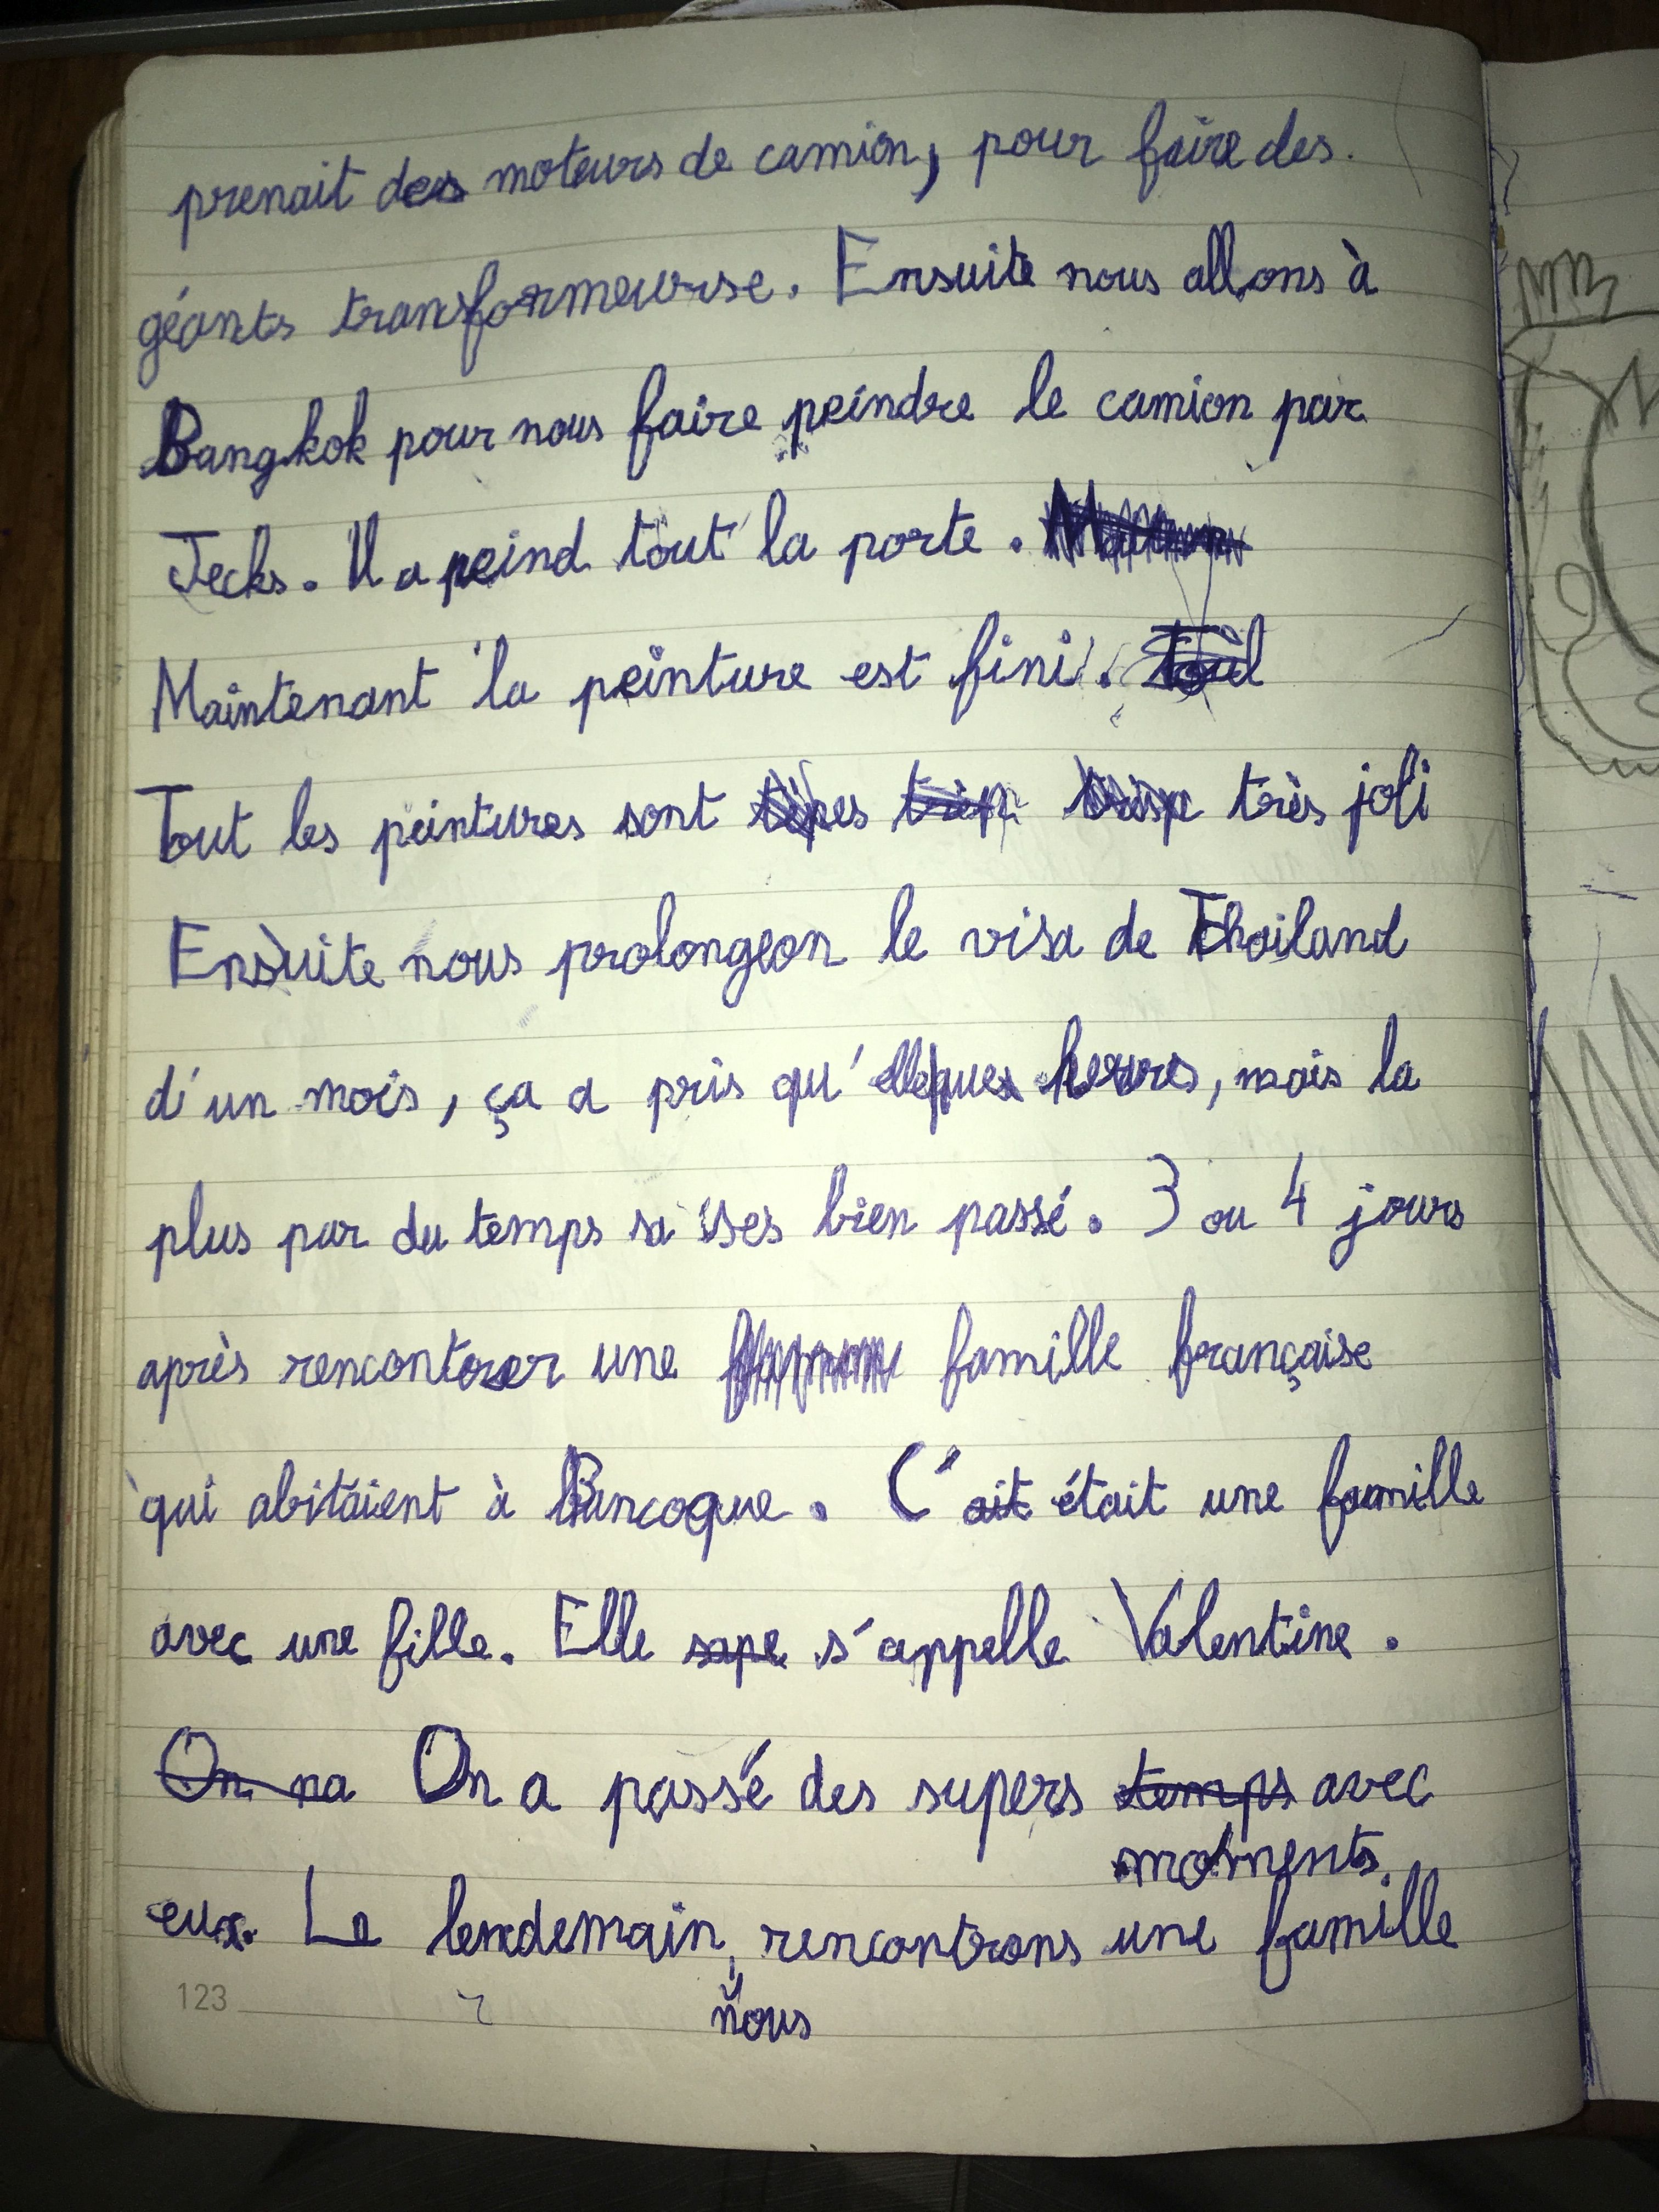 prenait des moteurs de camion, pour faire des.
géants transformeurse. Ensuite nous allons à
Bangkok pour nous faire peindre le camion par
Jecks. Il a peind tout la porte.
Maintenant la peinture est fini.
Tout les peintures sont très joli
Ensuite nous prolongeon le visa de Thailand
d'un mois, ça a pris qu'elleques heures, mais la
plus par du temps sa ses bien passé. 3 ou 4 jours
après rencontrer une famille française
qui abitaient à Bancoque. C'ait était une famille
avec une fille. Elle sape s'appelle Valentine.
On na On a passé des supers temps avec
moments
eux. Le lendemain, rencontrons une famille
nous
123